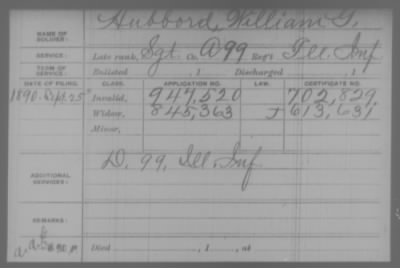 Hubbord, William G.
NAME OF SOLDIER:
SERVICE: Late rank, Sgt. Co. A 99 Reg't Ill. Inf
TERM OF SERVICE: Enlisted , 1 Discharged , 1
DATE OF FILING. CLASS. APPLICATION NO. LAW. CERTIFICATE NO.
1890. Sept. 25 Invalid, 947,520 702,829
Widow, 845,363 613,631
Minor,
D. 99, Ill. Inf
ADDITIONAL SERVICES:
REMARKS:
Died , 1 , at